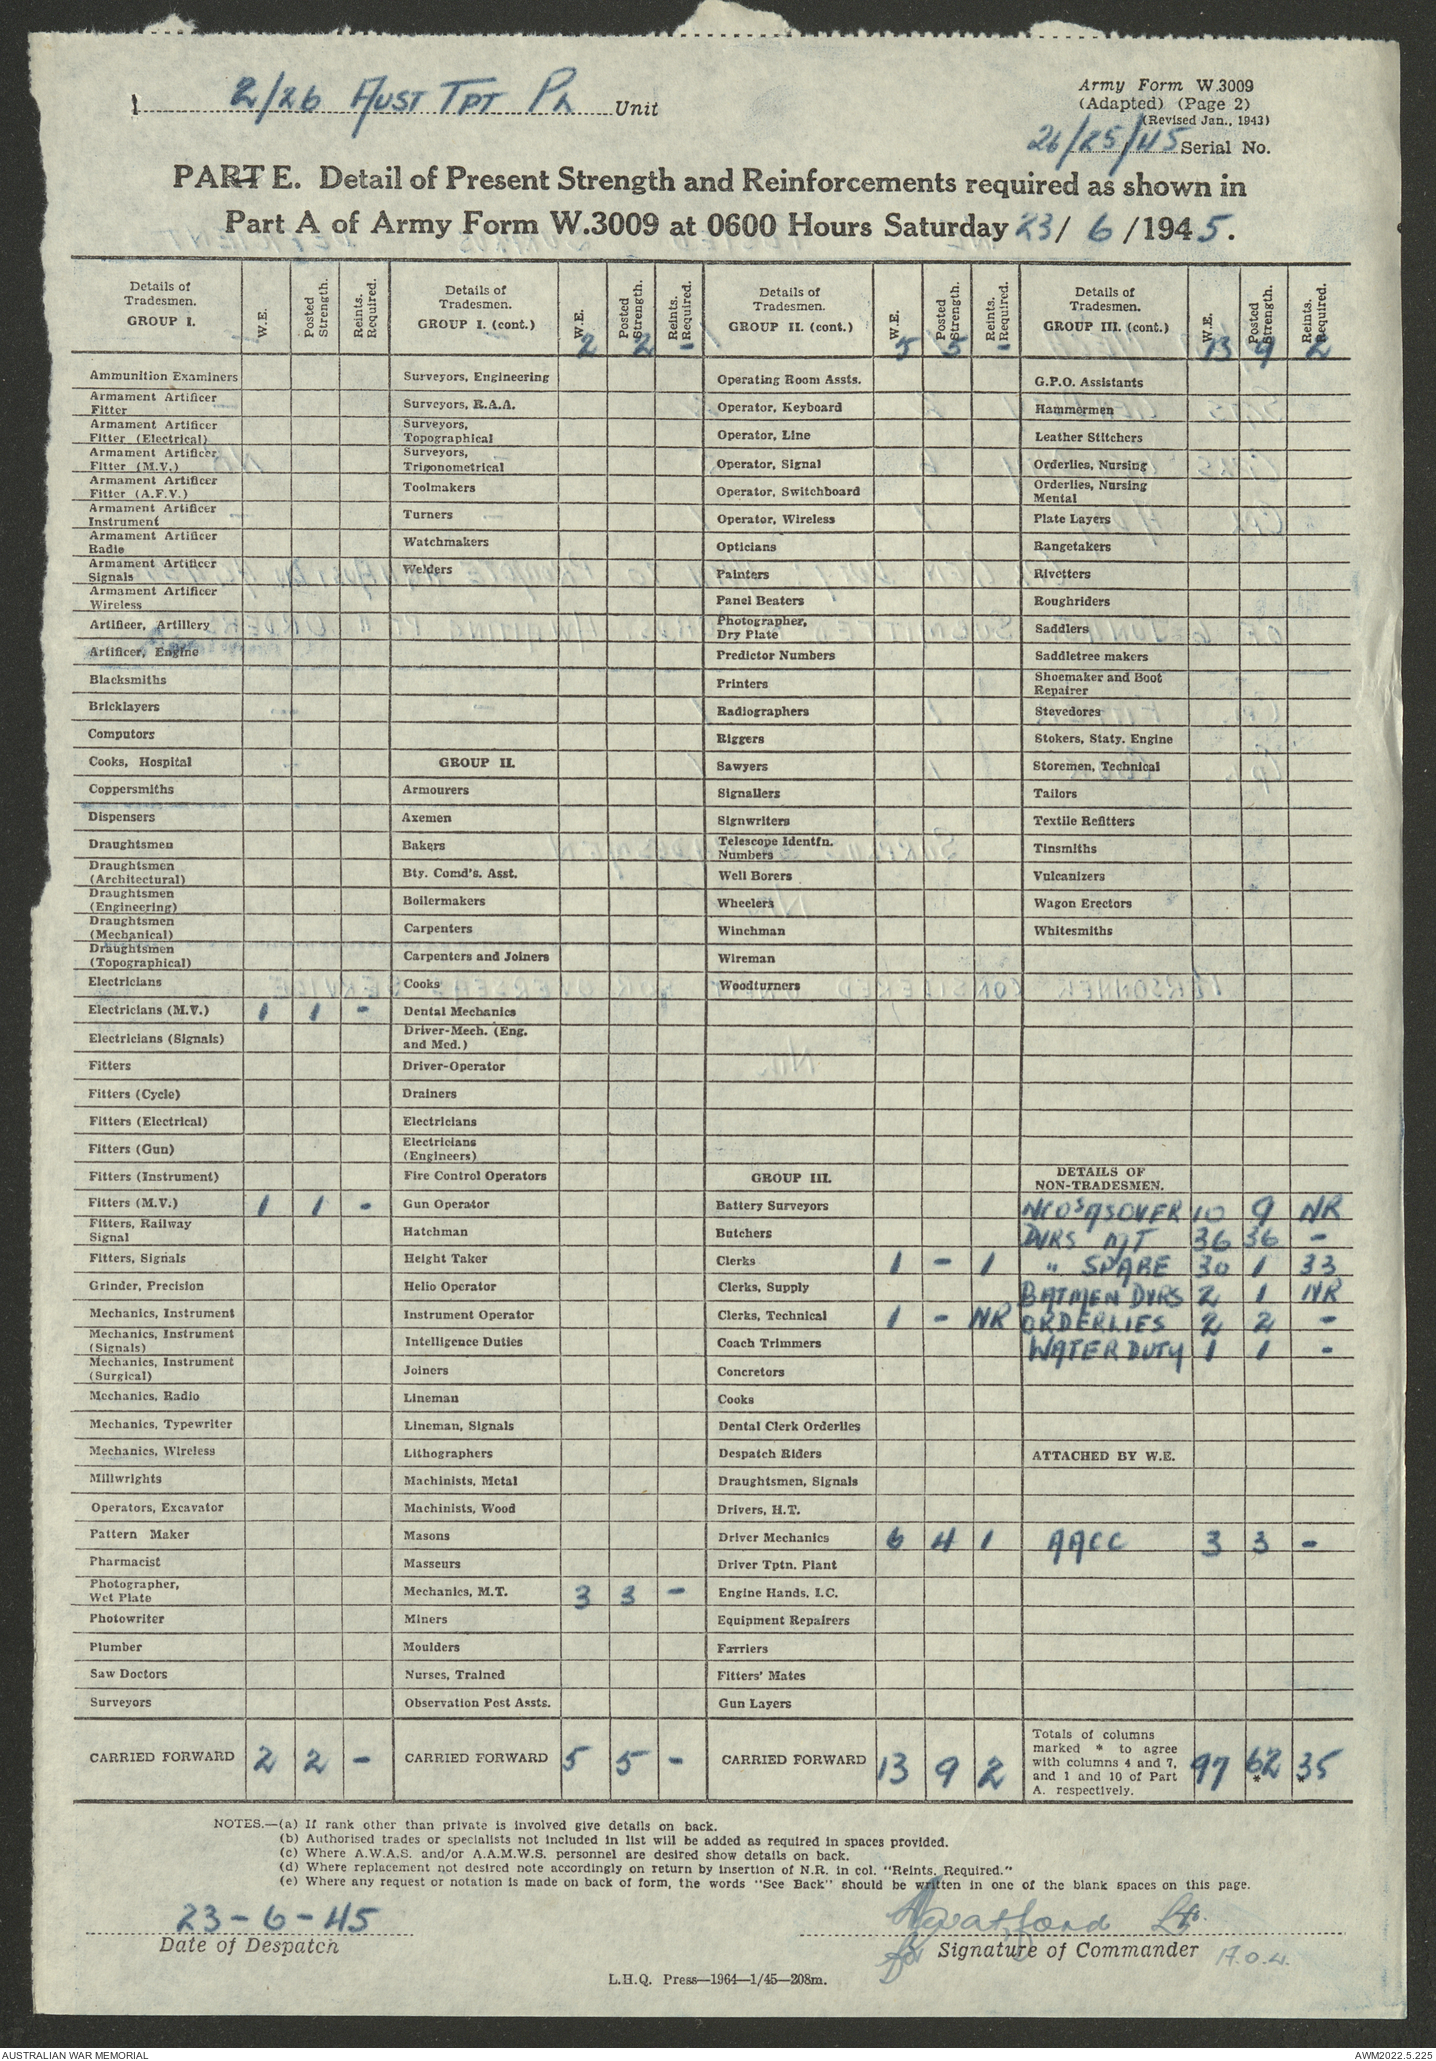 2/26 AUST TPT PL Unit
Army Form W.3009
(Adapted) (Page 2)
(Revised Jan., 1943)
26/25/45 Serial No.
PART E. Detail of Present Strength and Reinforcements required as shown in
Part A of Army Form W.3009 at 0600 Hours Saturday 23/ 6 /1945.
Details of Tradesmen. GROUP I. W.E. Posted Strength. Reints. Required.
Ammunition Examiners
Armament Artificer Fitter
Armament Artificer Fitter (Electrical)
Armament Artificer Fitter (M.V.)
Armament Artificer Fitter (A.F.V.)
Armament Artificer Instrument
Armament Artificer Radio
Armament Artificer Signals
Armament Artificer Wireless
Artificer, Artillery
Artificer, Engine
Blacksmiths
Bricklayers
Computors
Cooks, Hospital
Coppersmiths
Dispensers
Draughtsmen
Draughtsmen (Architectural)
Draughtsmen (Engineering)
Draughtsmen (Mechanical)
Draughtsmen (Topographical)
Electricians
Electricians (M.V.) 1 1 -
Electricians (Signals)
Fitters
Fitters (Cycle)
Fitters (Electrical)
Fitters (Gun)
Fitters (Instrument)
Fitters (M.V.) 1 1 -
Fitters, Railway Signal
Fitters, Signals
Grinder, Precision
Mechanics, Instrument
Mechanics, Instrument (Signals)
Mechanics, Instrument (Surgical)
Mechanics, Radio
Mechanics, Typewriter
Mechanics, Wireless
Millwrights
Operators, Excavator
Pattern Maker
Pharmacist
Photographer, Wet Plate
Photowriter
Plumber
Saw Doctors
Surveyors
CARRIED FORWARD 2 2 -
Details of Tradesmen. GROUP I. (cont.) W.E. Posted Strength. Reints. Required.
2 2 -
Surveyors, Engineering
Surveyors, R.A.A.
Surveyors, Topographical
Surveyors, Trigonometrical
Toolmakers
Turners
Watchmakers
Welders
GROUP II.
Armourers
Axemen
Bakers
Bty. Comd's. Asst.
Boilermakers
Carpenters
Carpenters and Joiners
Cooks
Dental Mechanics
Driver-Mech. (Eng. and Med.)
Driver-Operator
Drainers
Electricians
Electricians (Engineers)
Fire Control Operators
Gun Operator
Hatchman
Height Taker
Helio Operator
Instrument Operator
Intelligence Duties
Joiners
Lineman
Lineman, Signals
Lithographers
Machinists, Metal
Machinists, Wood
Masons
Masseurs
Mechanics, M.T. 3 3 -
Miners
Moulders
Nurses, Trained
Observation Post Assts.
CARRIED FORWARD 5 5 -
Details of Tradesmen. GROUP II. (cont.) W.E. Posted Strength. Reints. Required.
5 5 -
Operating Room Assts.
Operator, Keyboard
Operator, Line
Operator, Signal
Operator, Switchboard
Operator, Wireless
Opticians
Painters
Panel Beaters
Photographer, Dry Plate
Predictor Numbers
Printers
Radiographers
Riggers
Sawyers
Signallers
Signwriters
Telescope Identfn. Numbers
Well Borers
Wheelers
Winchman
Wireman
Woodturners
GROUP III.
Battery Surveyors
Butchers
Clerks 1 - 1
Clerks, Supply
Clerks, Technical 1 - NR
Coach Trimmers
Concretors
Cooks
Dental Clerk Orderlies
Despatch Riders
Draughtsmen, Signals
Drivers, H.T.
Driver Mechanics 6 4 1
Driver Tptn. Plant
Engine Hands, I.C.
Equipment Repairers
Farriers
Fitters' Mates
Gun Layers
CARRIED FORWARD 13 9 2
Details of Tradesmen. GROUP III. (cont.) W.E. Posted Strength. Reints. Required.
13 9 2
G.P.O. Assistants
Hammermen
Leather Stitchers
Orderlies, Nursing
Orderlies, Nursing Mental
Plate Layers
Rangetakers
Rivetters
Roughriders
Saddlers
Saddletree makers
Shoemaker and Boot Repairer
Stevedores
Stokers, Staty. Engine
Storemen, Technical
Tailors
Textile Refitters
Tinsmiths
Vulcanizers
Wagon Erectors
Whitesmiths
DETAILS OF NON-TRADESMEN.
NCO'S ASOVER 10 9 NR
DVRS MT 36 36 -
" SPARE 30 1 33
BATMEN DVRS 2 1 NR
ORDERLIES 2 2 -
WATER DUTY 1 1 -
ATTACHED BY W.E.
AACC 3 3 -
Totals of columns marked * to agree with columns 4 and 7, and 1 and 10 of Part A. respectively. 97 62* 35*
NOTES.—(a) If rank other than private is involved give details on back.
(b) Authorised trades or specialists not included in list will be added as required in spaces provided.
(c) Where A.W.A.S. and/or A.A.M.W.S. personnel are desired show details on back.
(d) Where replacement not desired note accordingly on return by insertion of N.R. in col. "Reints. Required."
(e) Where any request or notation is made on back of form, the words "See Back" should be written in one of the blank spaces on this page.
23-6-45
Date of Despatch
Lt.
for Signature of Commander
L.H.Q. Press—1964—1/45—208m.
AUSTRALIAN WAR MEMORIAL
AWM2022.5.225